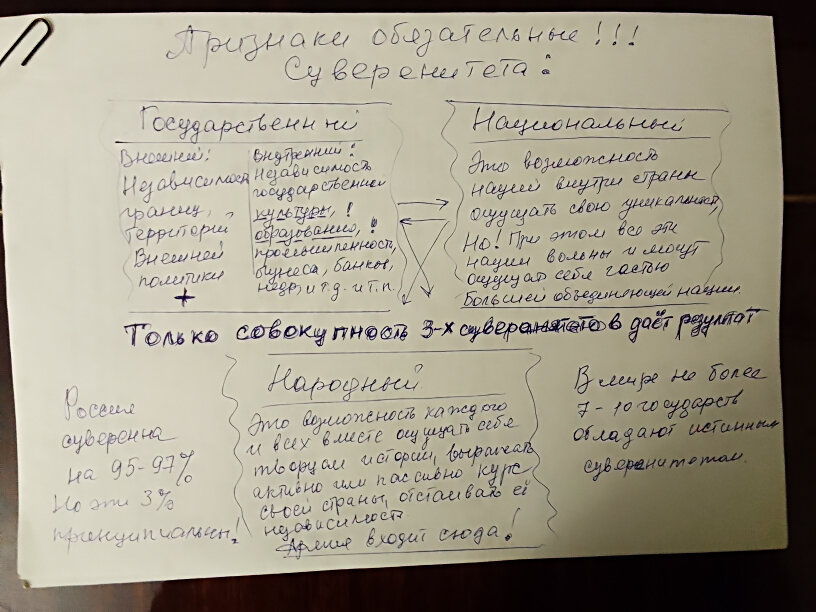 Признаки обязательные!!!
Суверенитета:
Государственный
Внешний:
Независимость
границ,
Территорий
Внешней
политики
+
Внутренний:
Независимость
государственной
культуры, !
образования, !
промышленности,
бизнеса, банков,
недр, и т.д. и т.п.
Национальный
Это возможность
наций внутри страны
ощущать свою уникальность,
Но! При этом все эти
нации вольны и могут
ощущать себя частью
Большей объединяющей нации.
Только совокупность 3-х суверенитетов даёт результат
Россия
суверенна
на 95-97%
Но эти 3%
принципиальны!
Народный
Это возможность каждого
и всех вместе ощущать себя
творцом истории, выражать
активно или пассивно курс
своей страны, отстаивать её
независимость.
Армия входит сюда!
В мире не более
7-10 государств
обладают истинным
суверенитетом.